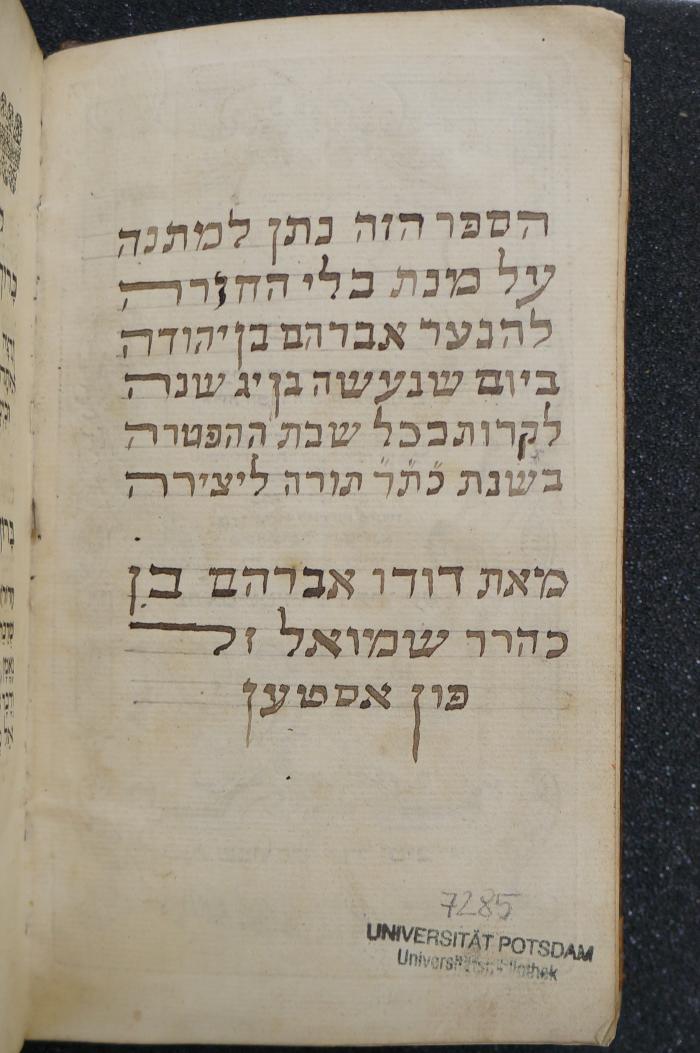 הספר הזה נתן למתנה
על מנת בלי החזרה
להנער אברהם בן יהודה
ביום שנעשה בן יג שנה
לקרות בכל שבת ההפטרה
בשנת כ̈ת̈ר̈ תורה ליצירה
מאת דודו אברהם בן
כהרר שמואל זל
פון אסטען
7285
UNIVERSITÄT POTSDAM
Universitätsbibliothek